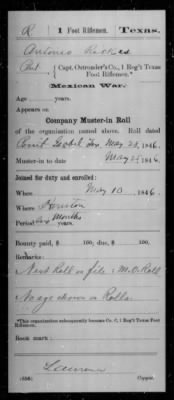 R 1 Foot Riflemen. Texas.
Antonio
Pvt., { Capt. Ostrander's Co., 1 Reg't Texas Foot Riflemen.*
Mexican War.
Age years.
Appears on
Company Muster-in Roll
of the organization named above. Roll dated
Point Isabel Tex, May 28, 1846.
Muster-in to date May 28, 1846.
Joined for duty and enrolled:
When May 10, 1846.
Where Houston
Period Six Months
Bounty paid $ 100; due $ 100.
Remarks:
Next Roll on file: M.O. Roll
No age shown on Rolls.
*This organization subsequently became Co. C, 1 Reg't Texas Foot Riflemen.
Book mark:
(656) Copyist.